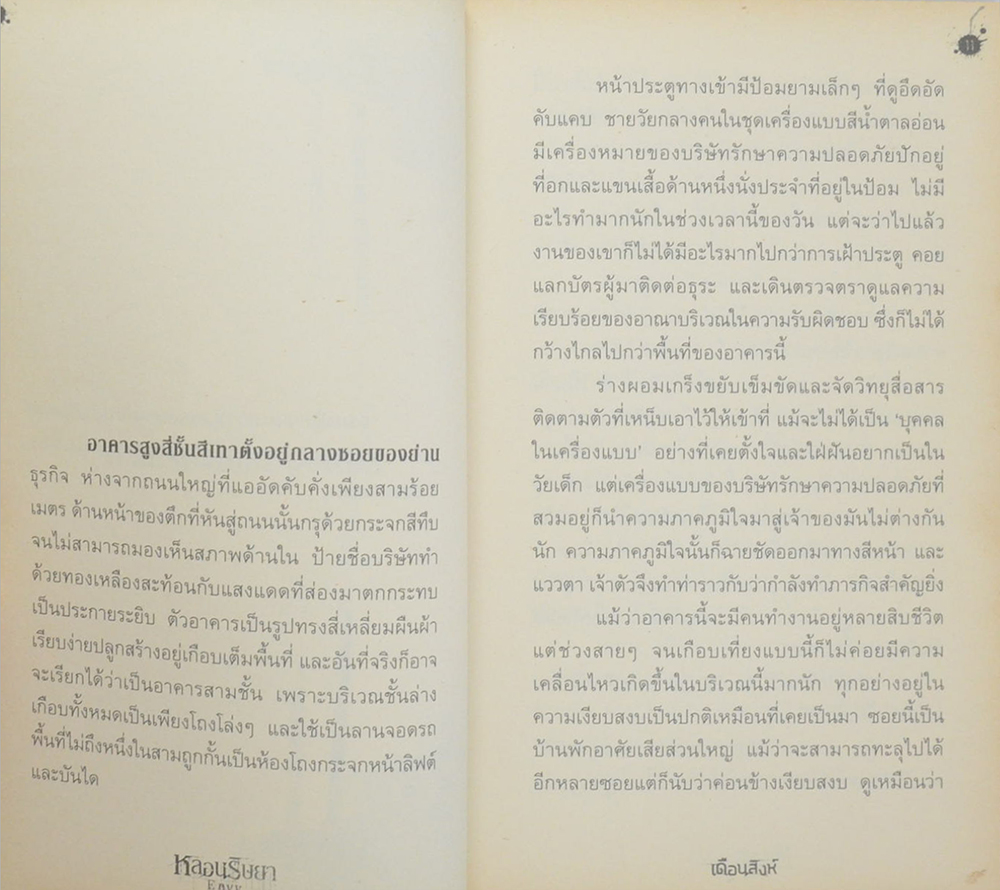 อาคารสูงสี่ชั้นสีเทาตั้งอยู่กลางซอยของย่าน
ธุรกิจ ห่างจากถนนใหญ่ที่แออัดคับคั่งเพียงสามร้อย
เมตร ด้านหน้าของตึกที่หันสู่ถนนนั้นกรุด้วยกระจกสีทึบ
จนไม่สามารถมองเห็นสภาพด้านใน ป้ายชื่อบริษัททำ
ด้วยทองเหลืองสะท้อนกับแสงแดดที่ส่องมาตกกระทบ
เป็นประกายระยิบ ตัวอาคารเป็นรูปทรงสี่เหลี่ยมผืนผ้า
เรียบง่ายปลูกสร้างอยู่เกือบเต็มพื้นที่ และอันที่จริงก็อาจ
จะเรียกได้ว่าเป็นอาคารสามชั้น เพราะบริเวณชั้นล่าง
เกือบทั้งหมดเป็นเพียงโถงโล่งๆ และใช้เป็นลานจอดรถ
พื้นที่ไม่ถึงหนึ่งในสามถูกกั้นเป็นห้องโถงกระจกหน้าลิฟต์
และบันได
หลอนริษยา
11
หน้าประตูทางเข้ามีป้อมยามเล็กๆ ที่ดูอึดอัด
คับแคบ ชายวัยกลางคนในชุดเครื่องแบบสีน้ำตาลอ่อน
มีเครื่องหมายของบริษัทรักษาความปลอดภัยปักอยู่
ที่อกและแขนเสื้อด้านหนึ่งนั่งประจำที่อยู่ในป้อม ไม่มี
อะไรทำมากนักในช่วงเวลานี้ของวัน แต่จะว่าไปแล้ว
งานของเขาก็ไม่ได้มีอะไรมากไปกว่าการเฝ้าประตู คอย
แลกบัตรผู้มาติดต่อธุระ และเดินตรวจตราดูแลความ
เรียบร้อยของอาณาบริเวณในความรับผิดชอบ ซึ่งก็ไม่ได้
กว้างไกลไปกว่าพื้นที่ของอาคารนี้
ร่างผอมเกร็งขยับเข็มขัดและจัดวิทยุสื่อสาร
ติดตามตัวที่เหน็บเอาไว้ให้เข้าที่ แม้จะไม่ได้เป็น ‘บุคคล
ในเครื่องแบบ’ อย่างที่เคยตั้งใจและใฝ่ฝันอยากเป็นใน
วัยเด็ก แต่เครื่องแบบของบริษัทรักษาความปลอดภัยที่
สวมอยู่ก็นำความภาคภูมิใจมาสู่เจ้าของมันไม่ต่างกัน
นัก ความภาคภูมิใจนั้นก็ฉายชัดออกมาทางสีหน้า และ
แววตา เจ้าตัวจึงทำท่าราวกับว่ากำลังทำภารกิจสำคัญยิ่ง
แม้ว่าอาคารนี้จะมีคนทำงานอยู่หลายสิบชีวิต
แต่ช่วงสายๆ จนเกือบเที่ยงแบบนี้ก็ไม่ค่อยมีความ
เคลื่อนไหวเกิดขึ้นในบริเวณนี้มากนัก ทุกอย่างอยู่ใน
ความเงียบสงบเป็นปกติเหมือนที่เคยเป็นมา ซอยนี้เป็น
บ้านพักอาศัยเสียส่วนใหญ่ แม้ว่าจะสามารถทะลุไปได้
อีกหลายซอยแต่ก็นับว่าค่อนข้างเงียบสงบ ดูเหมือนว่า
เดือนสิงห์